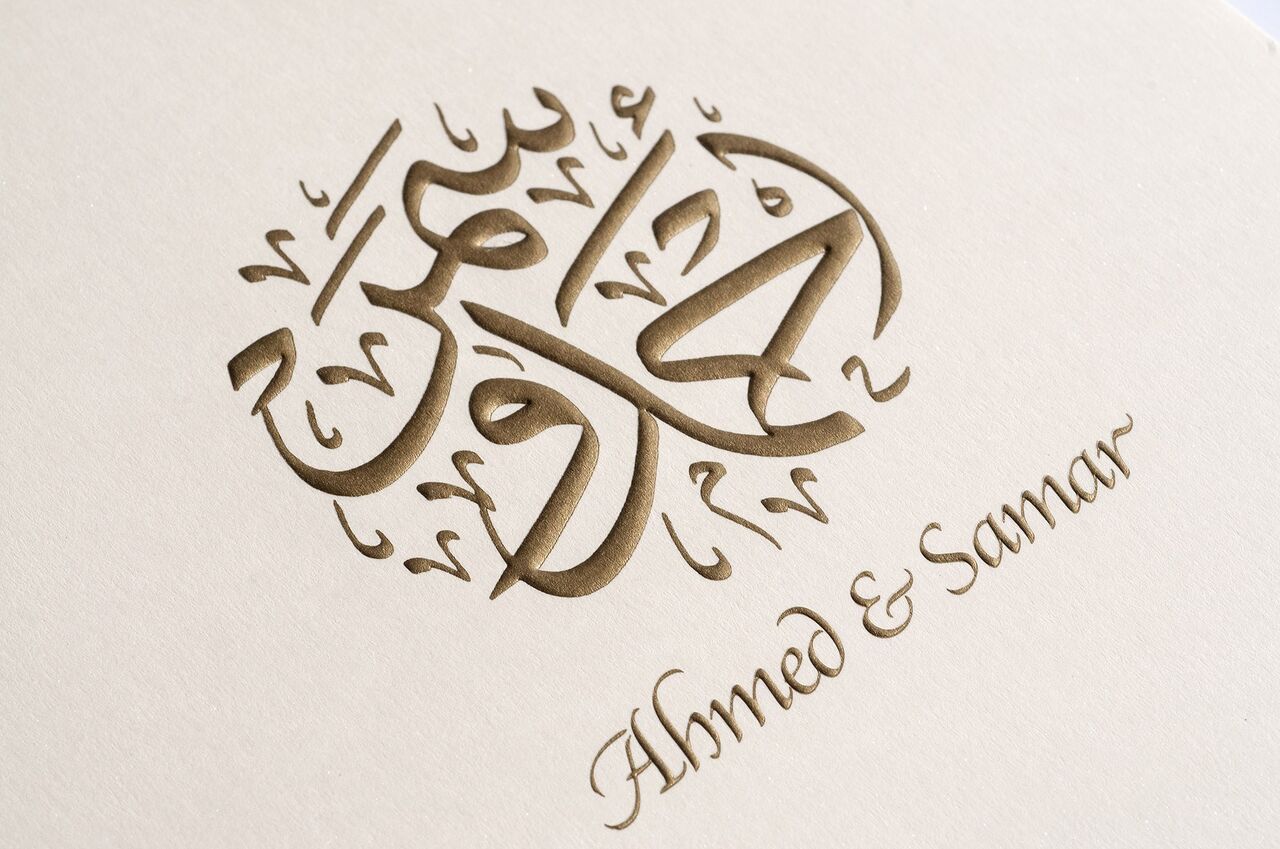 أحمد و سمر
Ahmed & Samar